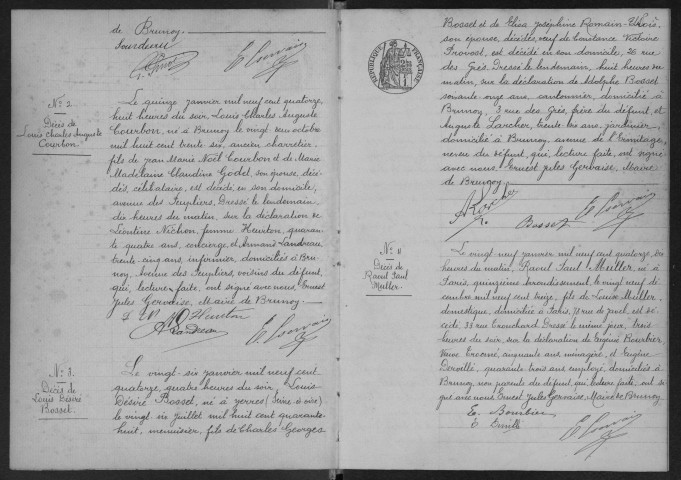 de Brunoy
N° 2
Décès de
Louis Charles Auguste
Courbon
Le quinze janvier mil neuf cent quatorze,
huit heures du soir, Louis Charles Auguste
Courbon, né à Brunoy le vingt octobre
mil huit cent trente six, ancien charretier,
fils de Jean Marie Noël Courbon et de Marie
Madelaine Claudine Godel son épouse, décé-
dés, célibataire, est décédé en son domicile,
avenue des Peupliers. Dressé le lendemain,
dix heures du matin, sur la déclaration de
Léontine Nichon, femme Heurton, quaran-
te quatre ans, concierge, et Armand Landreau
trente cinq ans, infirmier, domiciliés à Bru-
noy, Avenue des Peupliers, voisins du défunt,
qui, lecture faite, ont signé avec nous, Ernest
Jules Gervaise, Maire de Brunoy.
N° 3.
Décès de
Louis Désiré
Bosset.
Le vingt-six janvier mil neuf cent
quatorze, quatre heures du soir, Louis
Désiré Bosset, né à Yerres (Seine et Oise)
le vingt six juillet mil huit cent quarante-
huit, menuisier, fils de Charles Georges
RÉPUBLIQUE FRANÇAISE
Bosset et de Elisa Joséphine Romain
son épouse, décédés, veuf de Constance Victoire
Provost, est décédé en son domicile, 26 rue
des Grès. Dressé le lendemain, huit heures du
matin, sur la déclaration de Adolphe Bosset
soixante onze ans, cantonnier, domicilié à
Brunoy, 3 rue des Grès, frère du défunt, et
Auguste Larcher, trente ans, jardinier,
domicilié à Brunoy, avenue de l'Ermitage,
neveu du défunt, qui, lecture faite, ont signé
avec nous, Ernest Jules Gervaise, Maire
de Brunoy.
Bosset
N° 4
Décès de
Raoul Paul
Muller.
Le vingt neuf janvier mil neuf cent quatorze, dix
heures du matin, Raoul Paul Muller, né à
Paris, quinzième arrondissement, le vingt neuf dé-
cembre mil neuf cent treize, fils de Louise Muller,
domestique, domiciliée à Paris, est dé-
cédé, 33 rue. Dressé le même jour, trois
heures du soir, sur la déclaration de Eugénie Bourbier,
veuve, cinquante ans, ménagère, et Eugène
Derouillé, quarante trois ans, employé, domiciliés à
Brunoy, non parents du défunt, qui, lecture faite, ont si-
gné avec nous Ernest Jules Gervaise, Maire de Brunoy
E. Bourbier